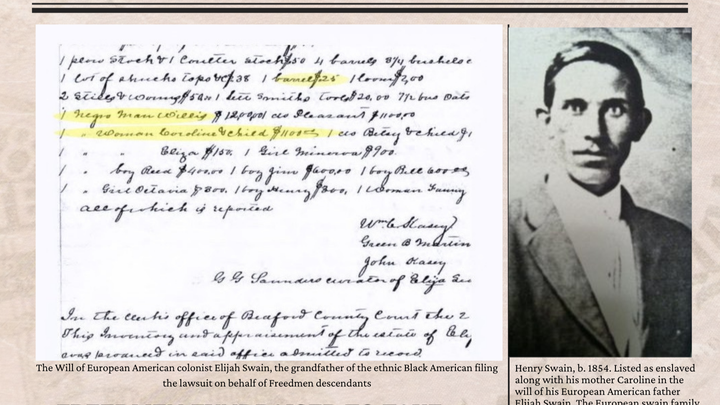 1 plow Stock & 1 Coulter Stock $50 4 barrels 3/4 bushels c
1 lot of shucks tops &c $38 1 barrel $25 1 loom $2,00
2 Stills & Worms 1 sett Smiths tools $20,00 7 1/2 bus Oats
1 Negro Man Willis $1200,00 1 do Pleasant $1100,00
1 " Woman Caroline & child $1100 1 do Betsy & child $1
1 " " Eliza $150, 1 Girl Minerva $900.
1 " boy Reed $400,00 1 boy Jim $600,00 1 boy Bill 600
1 " Girl Octavia $800, 1 boy Henry $300, 1 Woman Fanny
all of which is reported
Wm C Kasey
Green B Martin
John Kasey
G G Saunders curator of Elija Sw
In the clerks office of Bedford County Court the 2
This Inventory and appraisement of the estate of Elij
was produced in said office admitted to record
The Will of European American colonist Elijah Swain, the grandfather of the ethnic Black American filing
the lawsuit on behalf of Freedmen descendants
Henry Swain, b. 1854. Listed as enslaved
along with his mother Caroline in the
will of his European American father
Elijah Swain. The European swain family